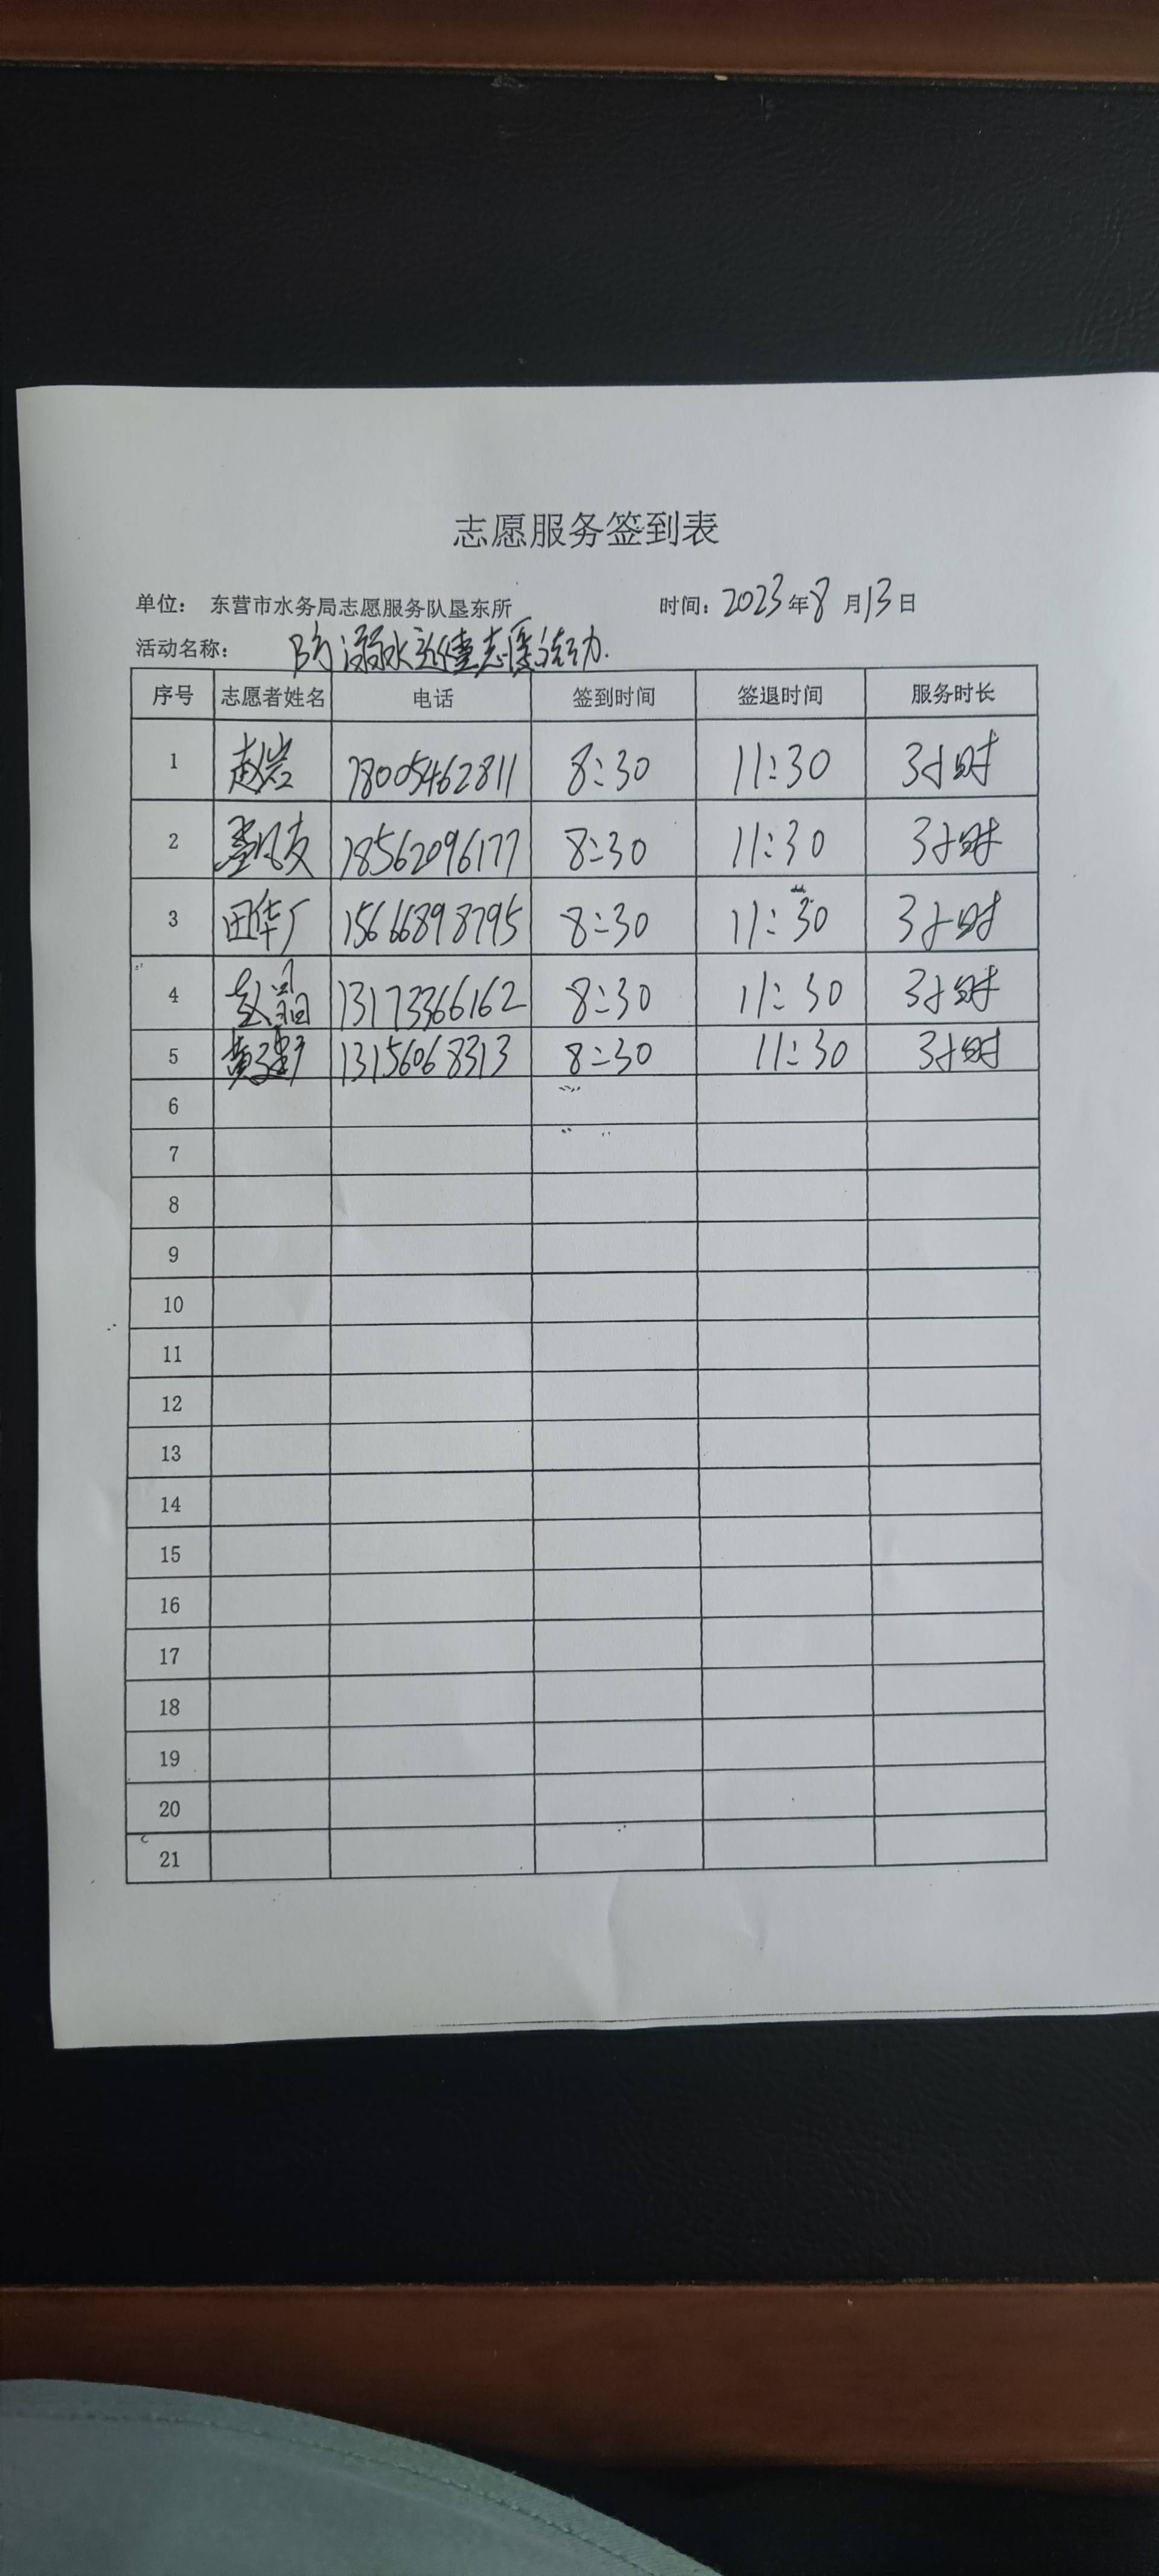 志愿服务签到表
单位： 东营市水务局志愿服务队垦东所 时间：2023年8月13日
活动名称： 防溺水志愿活动.
序号 志愿者姓名 电话 签到时间 签退时间 服务时长
1 赵岩 18005462811 8:30 11:30 3小时
2 18562096177 8:30 11:30 3小时
3 田华广 15666898795 8:30 11:30 3小时
4 赵晶 13173366162 8:30 11:30 3小时
5 13156068313 8:30 11:30 3小时
6
7
8
9
10
11
12
13
14
15
16
17
18
19
20
21